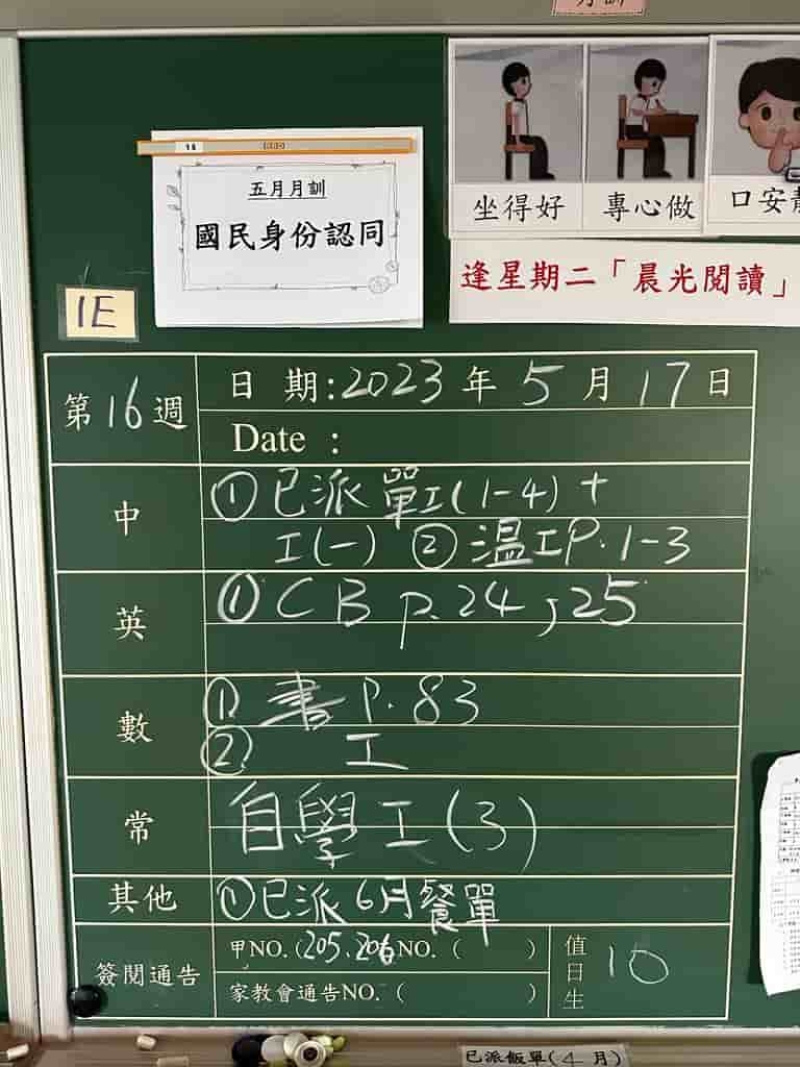 五月月訓
國民身份認同
坐得好
專心做
口安靜
逢星期二「晨光閱讀」
1E
第16週
日 期:2023年5月17日
Date :
中
①已派單工(1-4)+
工(一) ②溫工P.1-3
英
①CB p.24,25
數
①書P.83
② 工
常
自學工(3)
其他
①已派6月餐單
簽閱通告
甲NO.(205.206 NO. ( )
家教會通告NO. ( )
值日生
10
已派飯單(4月)